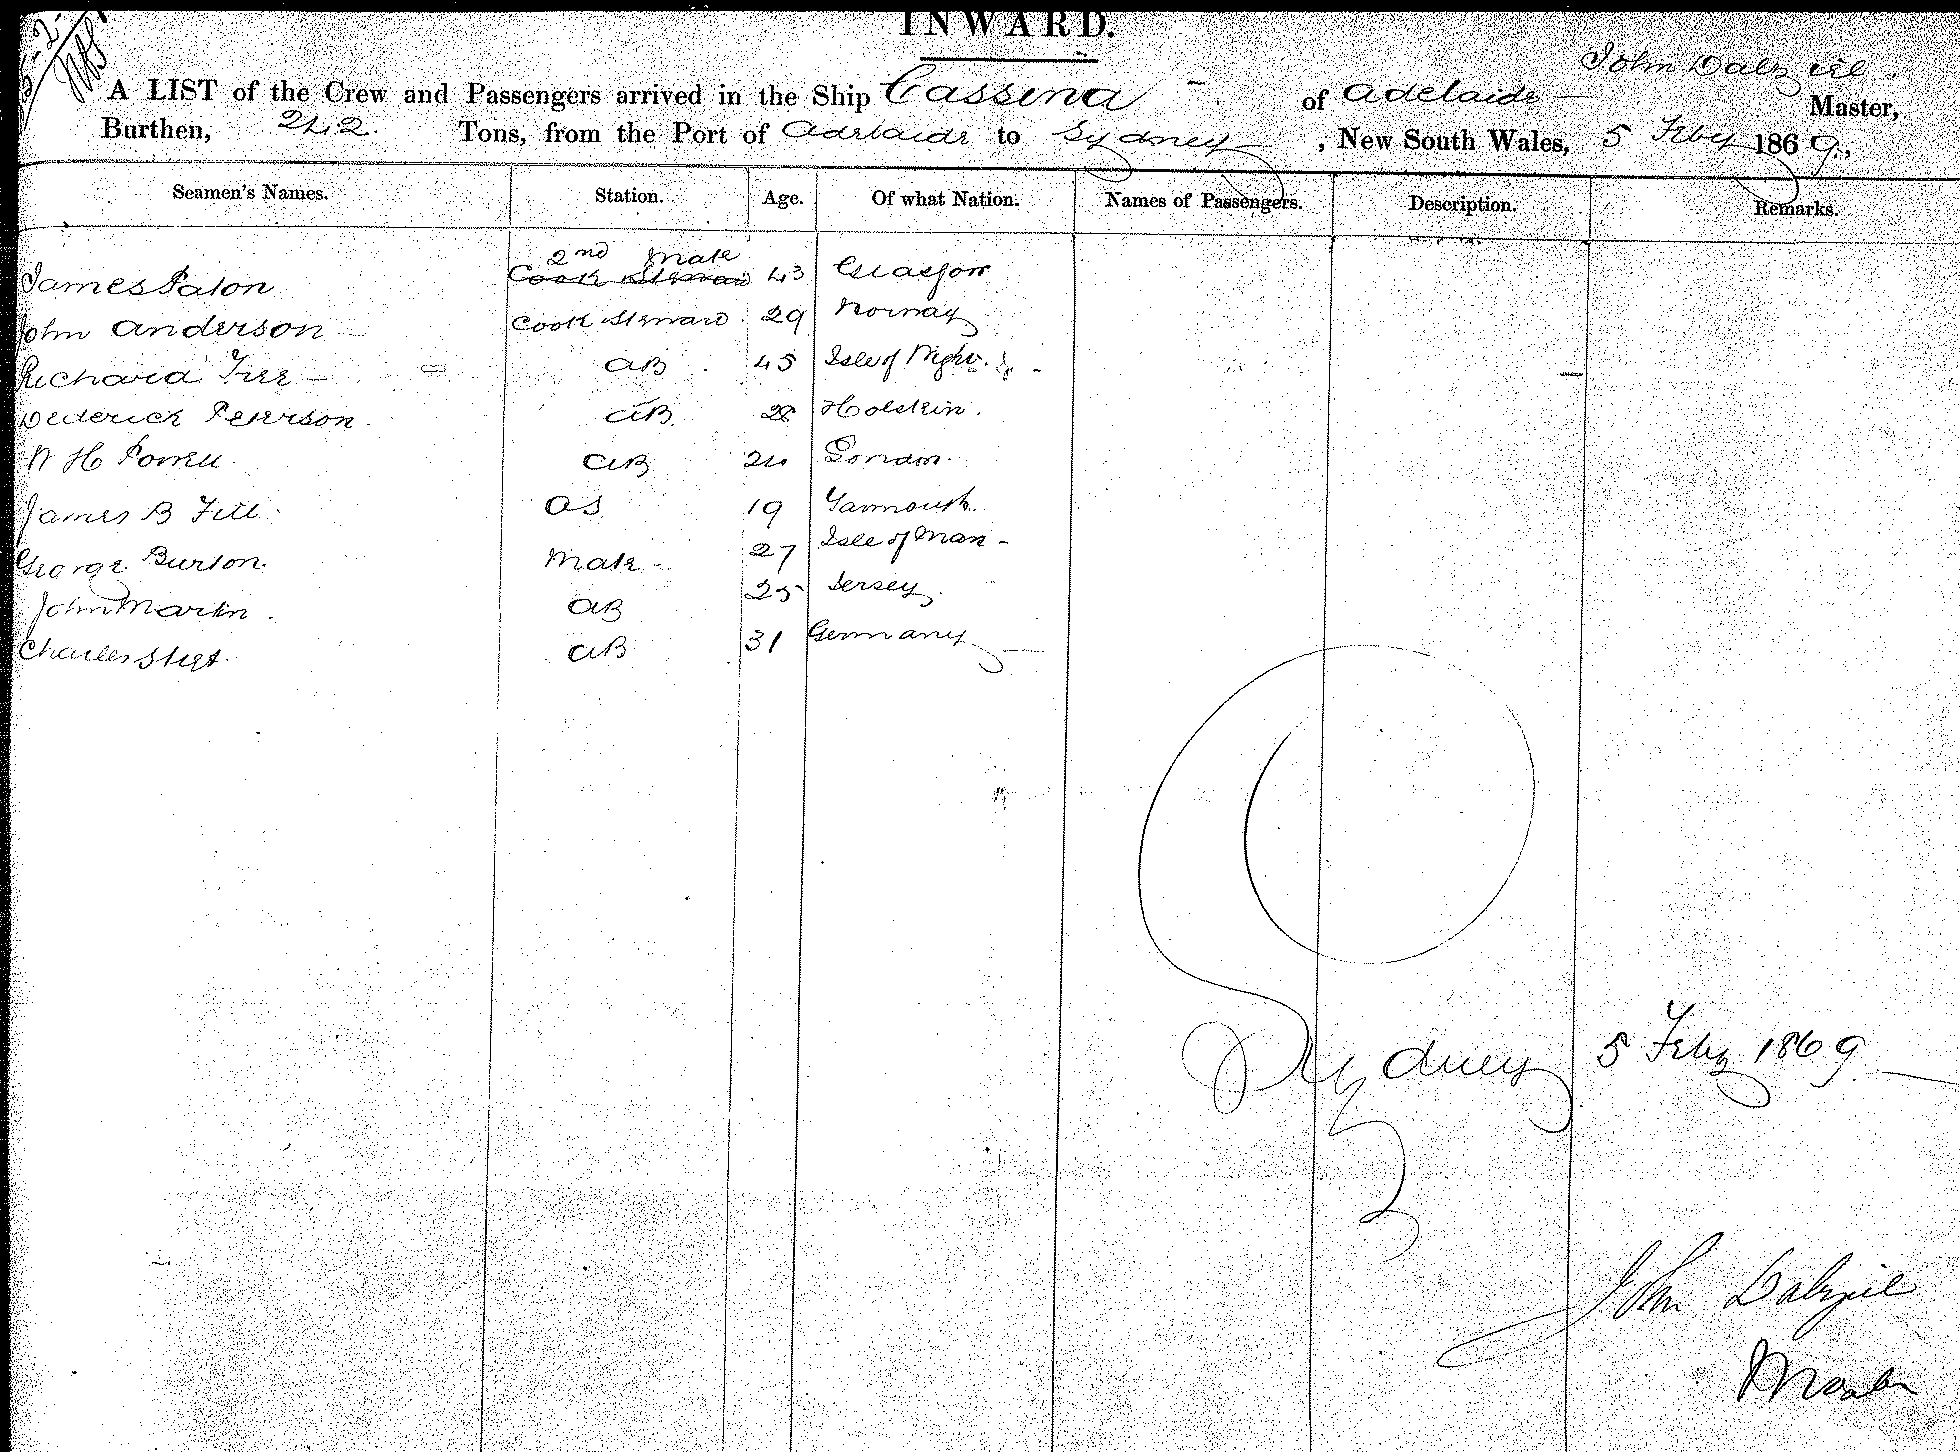 INWARD.
John Dalziel
A LIST of the Crew and Passengers arrived in the Ship Cassina of Adelaide Master,
Burthen, 242 Tons, from the Port of Adelaide to Sydney, New South Wales, 5 Feby 1869.,
Seamen's Names. Station. Age. Of what Nation. Names of Passengers. Description. Remarks.
2nd Mate
James Paton Cook Steward 43 Glasgow
John Anderson Cook Steward 29 Norway
Richard AB 45 Isle of Wight
Dederick Peterson AB 28 Holstein
W H Powell AB 24 London
James B OS 19 Yarmouth
George Burton Mate 27 Isle of Man
John Martin AB 25 Jersey
Charles AB 31 Germany
Sydney 5 Feby 1869
John Dalziel
Master